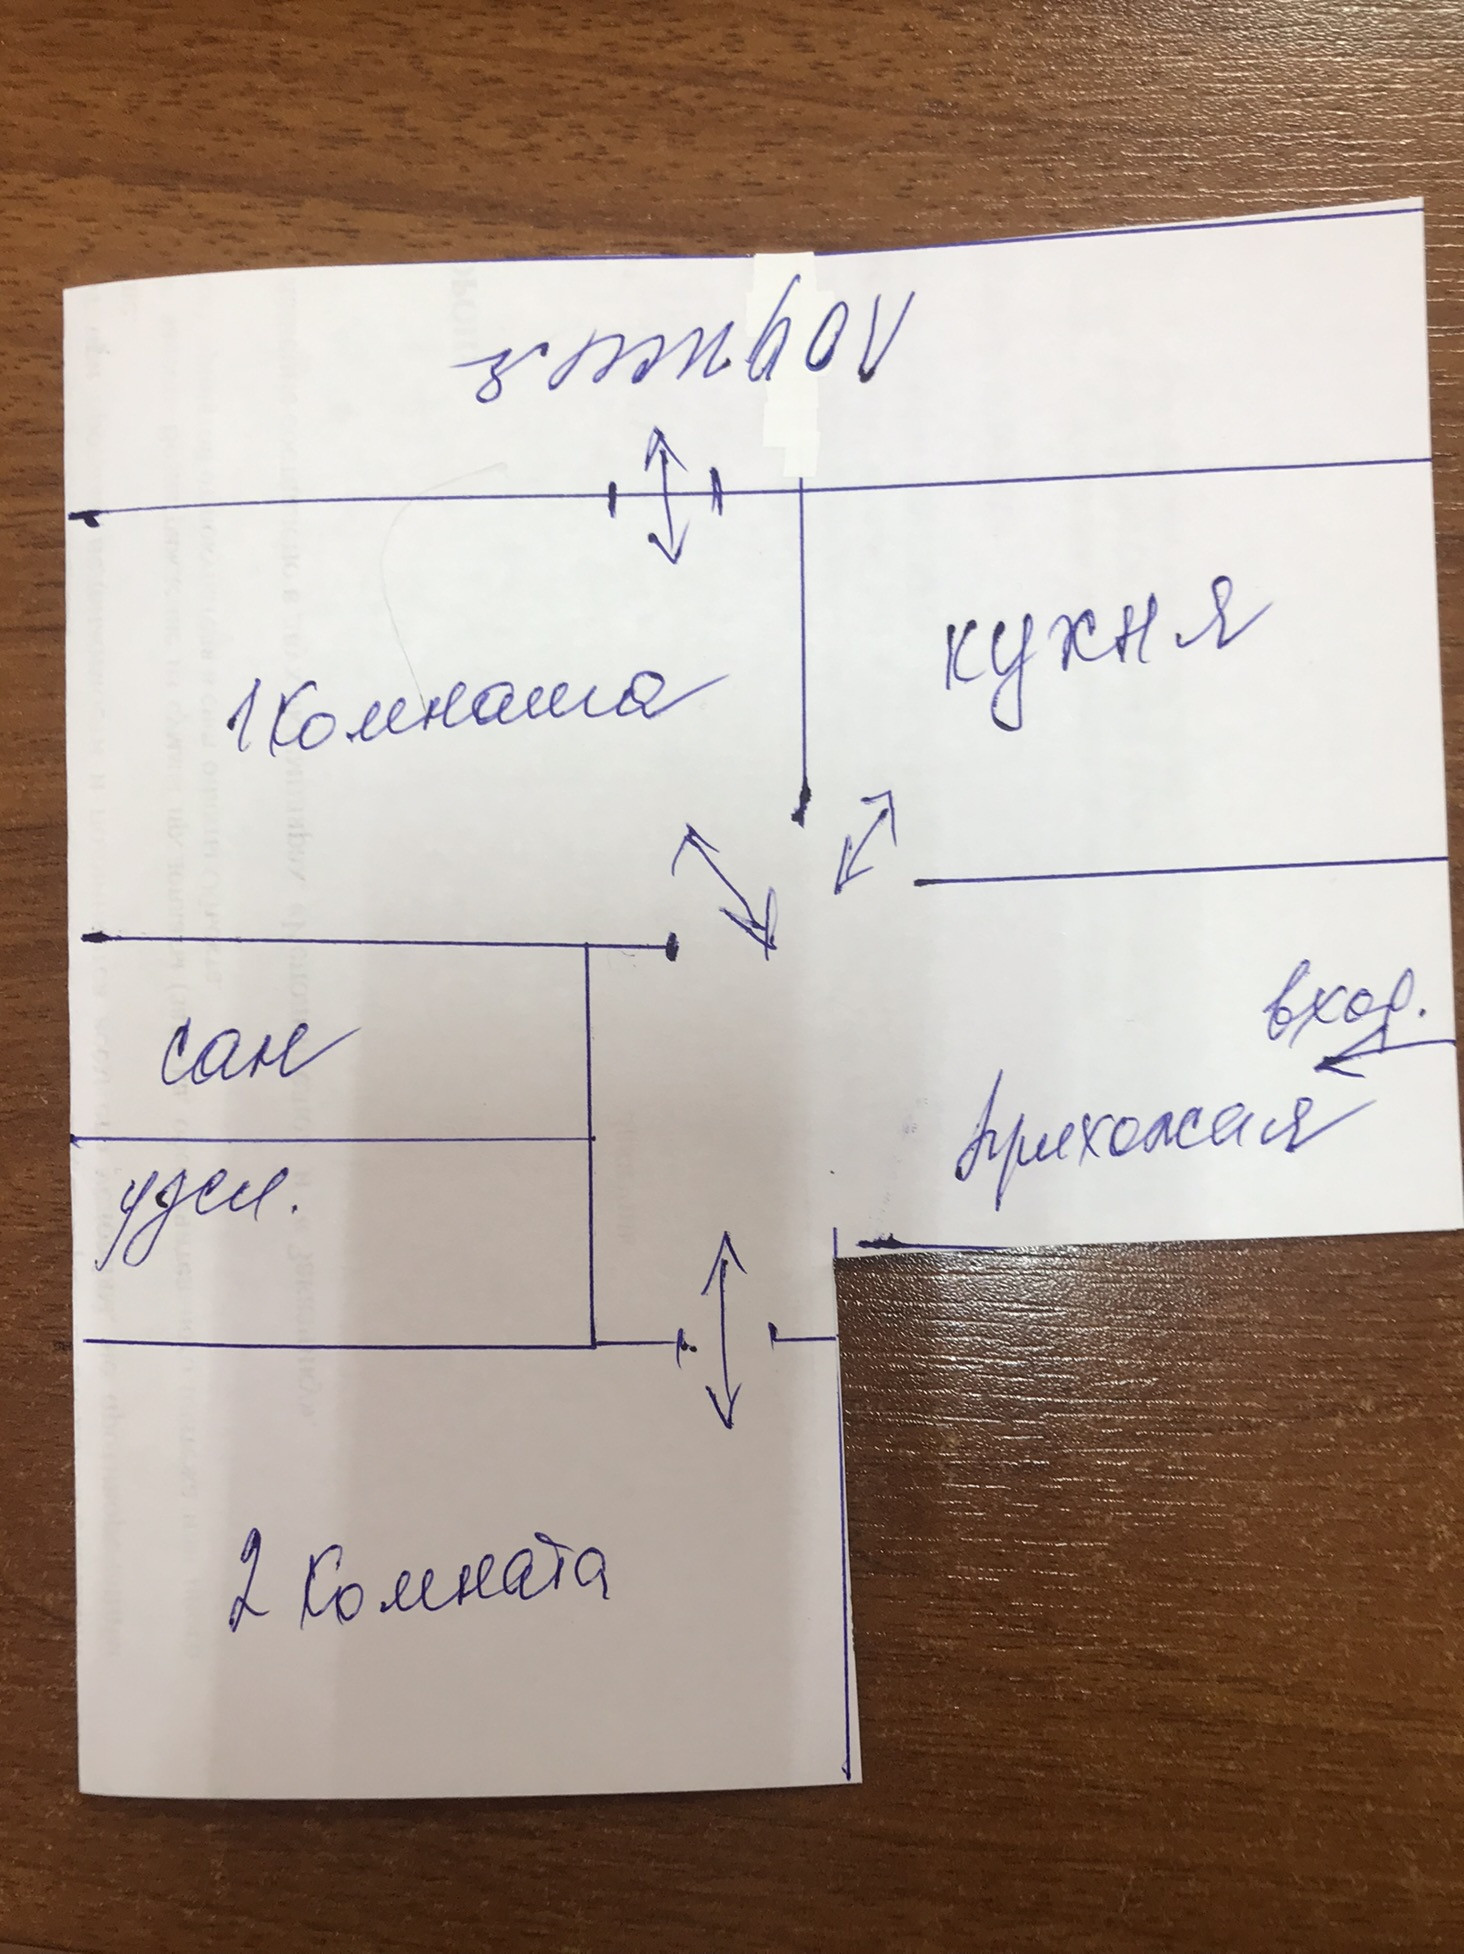 лоджия
кухня
1 комната
вход.
сан
прихожая
узел.
2 комната